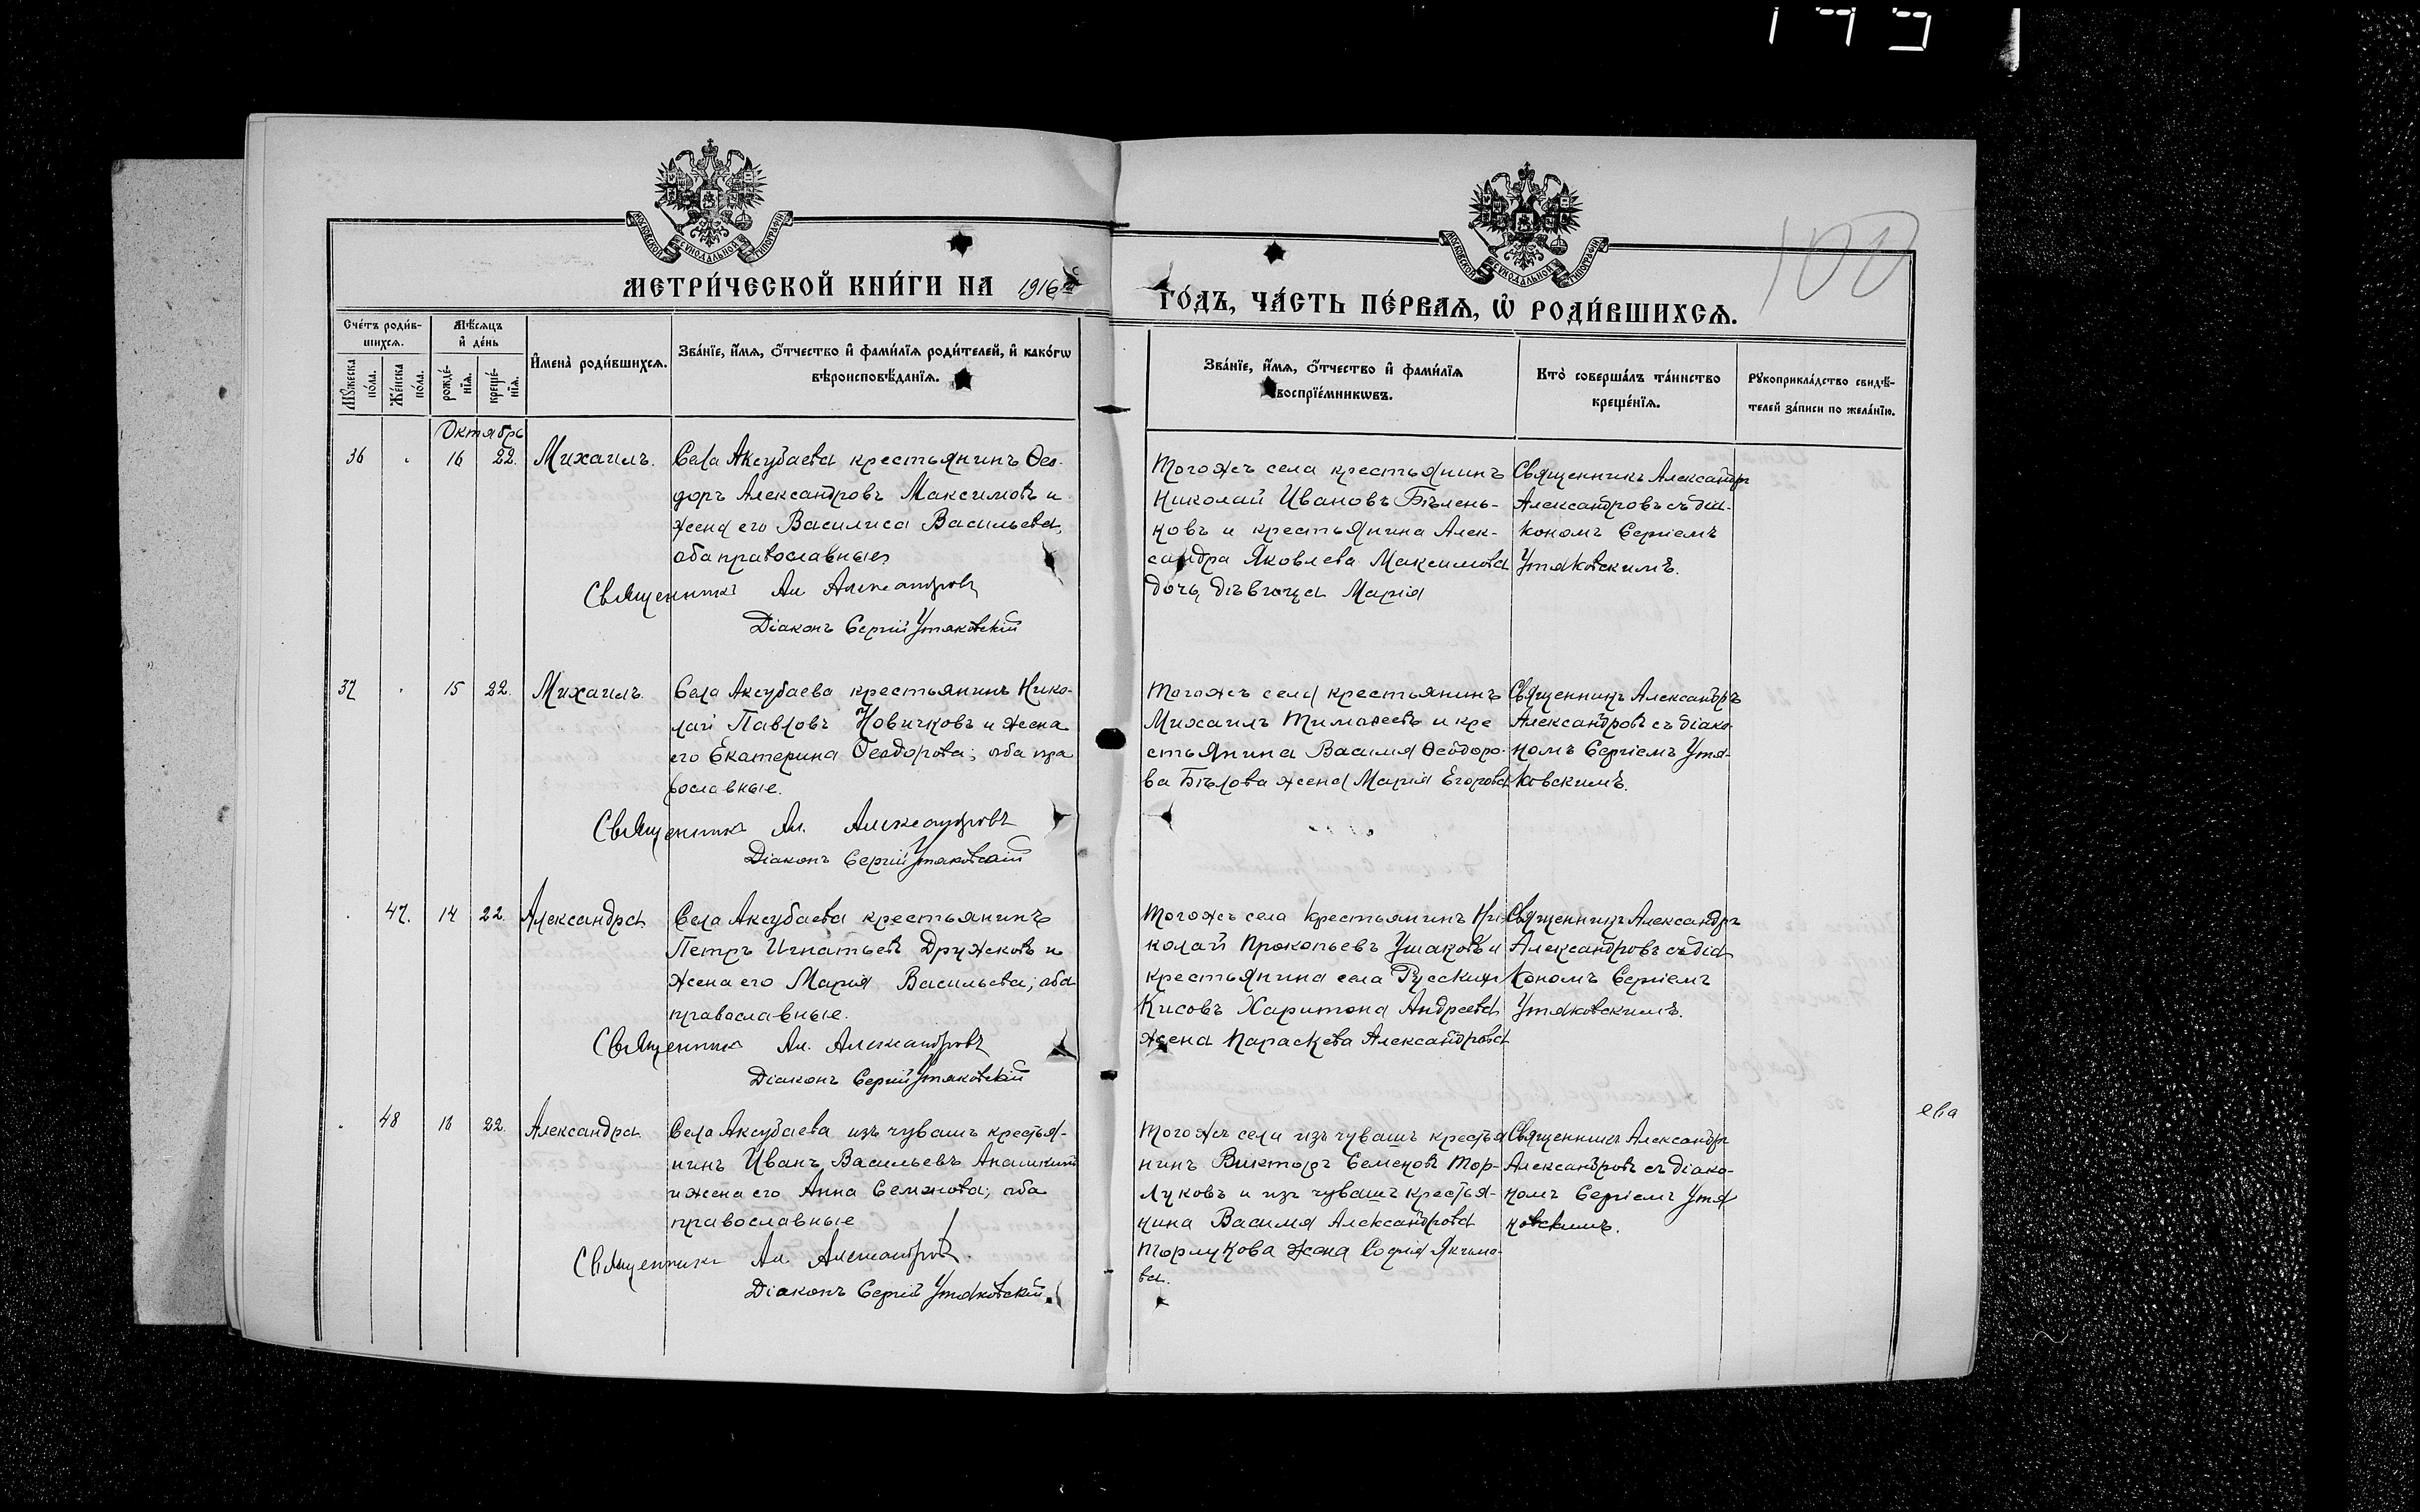 МЕТРИ́ЧЕСКОЙ КНИ́ГИ НА 1916й
ГО́ДЪ, ЧА́СТЬ ПЕ́РВАѦ, Ѡ҆ РОДИ́ВШИХСѦ.
100
МОСКОВСКОЙ СѴНОДАЛЬНОЙ ТИПОГРАФІИ
МОСКОВСКОЙ СѴНОДАЛЬНОЙ ТИПОГРАФІИ
Сче́тъ роди́в-
шихсѧ.
Мѣ́сѧцъ
и҆ де́нь
Мꙋ́жеска
по́ла.
Же́нска
по́ла.
рожде́-
нїѧ.
креще́-
нїѧ.
И҆мена̀ роди́вшихсѧ.
Зва́нїе, и҆́мѧ, ѻ҆́тчество и҆ фами́лїѧ роди́телей, и҆ како́гѡ
вѣроисповѣ́данїѧ.
Зва́нїе, и҆́мѧ, ѻ҆́тчество и҆ фами́лїѧ
воспрїе́мникѡвъ.
Кто̀ соверша́лъ та́инство
креще́нїѧ.
Рꙋкоприкла́дство свидѣ́-
телей за́писи по жела́нїю.
Октябрь
36 16 22. Михаилъ.
Села Аксубаева крестьянинъ Ѳео-
доръ Александровъ Максимовъ и
жена его Василиса Васильева,
оба православные
Священникъ Ал Александровъ
Діаконъ Сергій Утяковскій
Тогожъ села крестьянинъ
Николай Ивановъ Бѣлень-
ковъ и крестьянина Алек-
сандра Яковлева Максимова
дочь дѣвица Марія
Священникъ Александръ
Александровъ съ діа-
кономъ Сергіемъ
Утяковскимъ.
37 15 22. Михаилъ
Села Аксубаева крестьянинъ Нико-
лай Павловъ Новичковъ и жена
его Екатерина Ѳеодорова; оба пра
вославные.
Священникъ Ал. Александровъ
Діаконъ Сергій Утяковскій
Тогожъ села крестьянинъ
Михаилъ Тимоѳеевъ и кре
стьянина Василія Ѳеодоро-
ва Бѣлова жена Марія Егорова
Священникъ Александръ
Александровъ съ діако-
номъ Сергіемъ Утя-
ковскимъ.
47. 14 22. Александра
Села Аксубаева крестьянинъ
Петръ Игнатьевъ Дружковъ и
жена его Марія Васильева; оба
православные.
Священникъ Ал. Александровъ
Діаконъ Сергій Утяковскій
Тогожъ села крестьянинъ Ни-
колай Прокопьевъ Ушаковъ и
крестьянина села Русскихъ
Кисовъ Харитона Андреева
жена Параскева Александрова
Священникъ Александръ
Александровъ съ діа
кономъ Сергіемъ
Утяковскимъ.
48 18 22. Александра
Села Аксубаева изъ чувашъ крестья-
нинъ Иванъ Васильевъ
и жена его Анна Семенова; оба
православные
Священникъ Ал. Александровъ.
Діаконъ Сергій Утяковскій.
Тогожъ села изъ чувашъ крестья
нинъ Викторъ Семеновъ Тор-
луковъ и изъ чувашъ крестья-
нина Василія Александрова
Торлукова жена Софія Якимо-
ва.
Священникъ Александръ
Александровъ съ діако-
номъ Сергіемъ Утя
ковскимъ.
ева